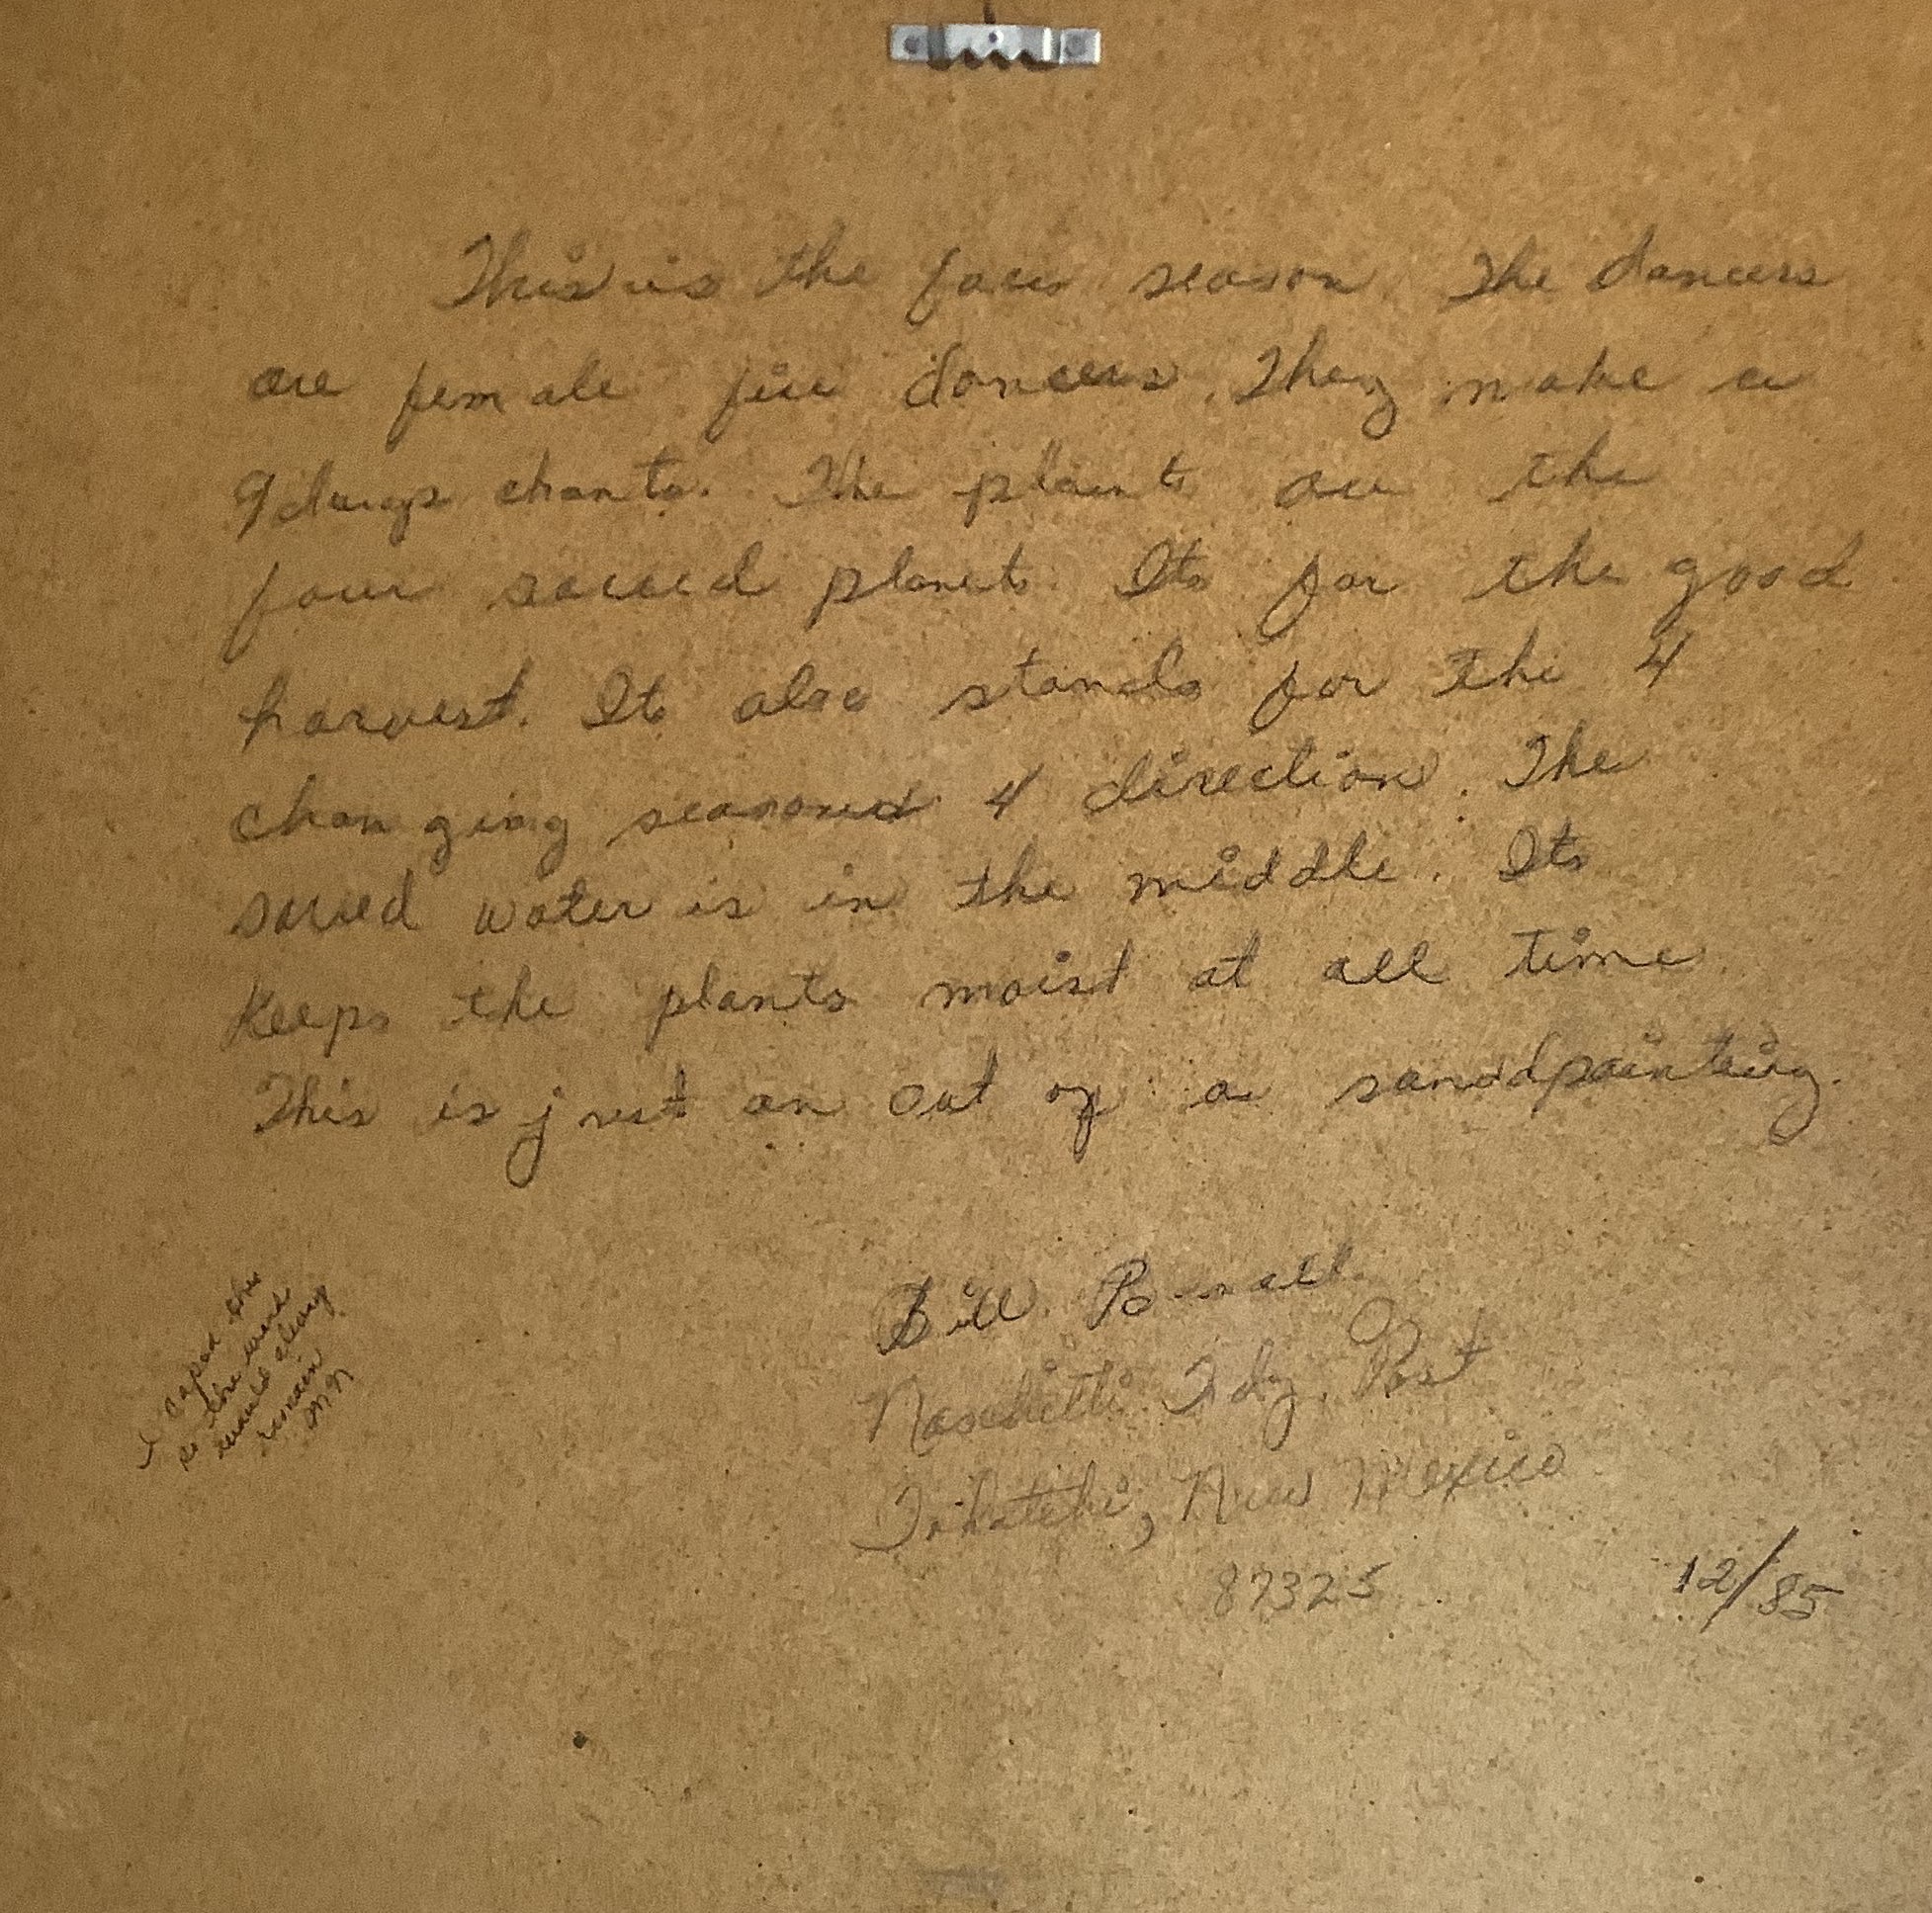 This is the four season. The dancers
are female fire dancers. They make a
9 days chants. The plants are the
four sacred plants. Its for the good
harvest. It also stands for the 4
changing seasons 4 direction. The
sacred water is in the middle. Its
Keeps the plants moist at all time.
This is just an out of a sandpainting.
Bill
Naschitti Trdg. Post
Tohatchi, New Mexico
87325
12/85
I copied this
so the word
would always
remain